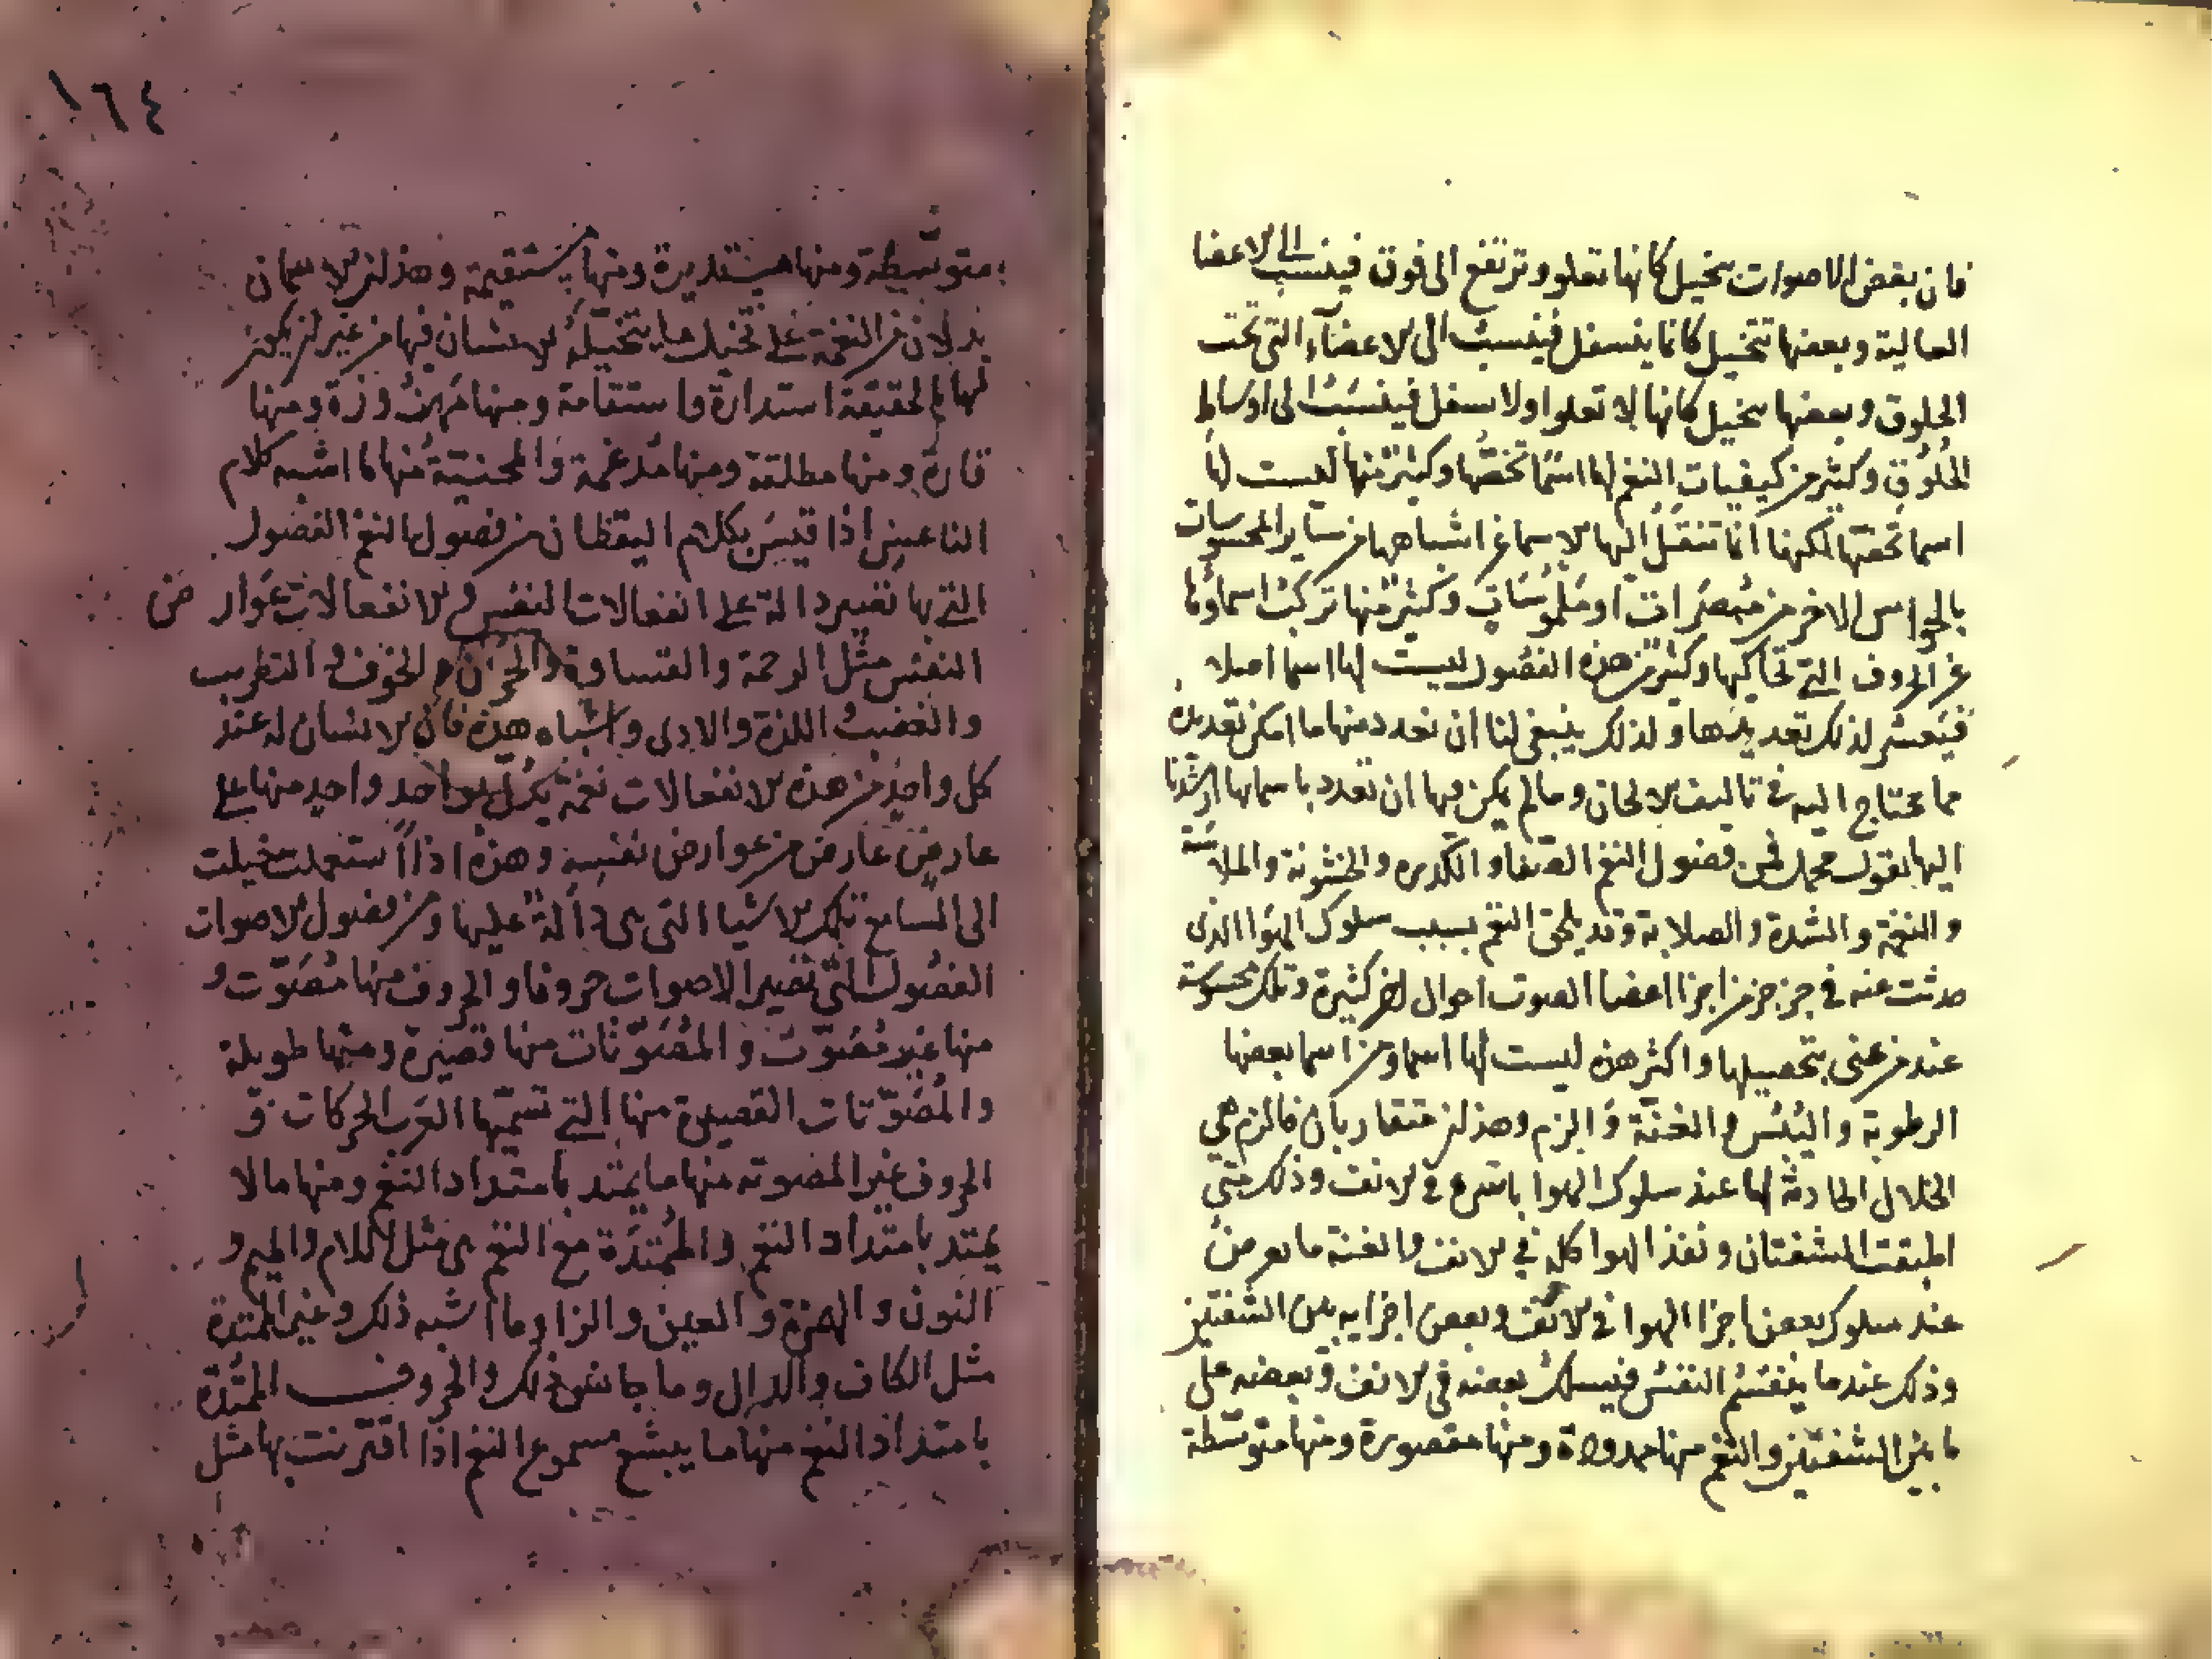 فان بعض الاصوات يتخيل كانها تعلو وترتفع الى فوق فينسب الى الاعضا
العالية وبعضها تتخيل كانها ينسفل فينسب الى الاعضآء التى تحت
الحلوق وبعضها يتخيل كانها لا تعلوا ولا تسفل فينسب الى اوساط
الحلوق وكثير من كيفيات النغم لها اسما تخصها وكثير منها ليست لها
اسما تخصها لكنها انما تنقل اليها الاسما عن اشباهها من ساير المحسوسات
بالحواس الاخر من مبصرات او ملموسات وكثير منها تركبت اسماوها
عن الحروف التى تحاكيها وكثير من هذه الفصول ليست لها اسما اصلا
فيعسر لذلك تعديدها ولذلك ينبغى لنا ان نعدد منها ما امكن تعديده
مما يحتاج اليه فى تاليف الالحان وما لم يمكن فيها ان تعدد باسمايها ارشدنا
اليها بقول مجمل فمن فصول النغم الصفا والكدره والخشونة والملاسة
والنعمة والشدة والصلابة وقد يلحق النغم بسبب سلوك الهوا الذى
حدثت عنه فى جز جز من اجزا اعضا الصوت احوال اخر كثيرة وتلك محسوسة
عند من عنى بتحصيلها واكثر هذه ليست لها اسما ومن اسما بعضها
الرطوبة واليبس والغنة والزم وهذان متقاربان فالزم هى
الحلال الحادثة لها عند سلوك الهوا باسره فى الانف وذلك متى
اطبقت الشفتان ونفذ الهوا كله فى الانف والغنة ما يعرض
عند سلوك بعض اجزا الهوا فى الانف وبعض اجزايه بين الشفتين
وذلك عندما ينقسم النفس فيسلك بعضه فى الانف وبعضه على
ما بين الشفتين والنغم منها ممدودة ومنها مقصورة ومنها متوسطة
١٦٤
متوسطة ومنها مستديرة ومنها مستقيمة وهذان الاسمان
يدلان من النغمة على تخيل ما يتخيله الانسان فيها من غير ان يكون
لها بالحقيقة استدارة واستقامة ومنها مهزوزة ومنها
قارة ومنها مطلقة ومنها مدغمة والمحنية منها ما اشبه كلام
الناعس اذا قيس بكلام اليقظان من فصول النغم الفصول
التى بها تصير دالة على انفعالات النفس والانفعالات عوارض
النفس مثل الرحمة والقساوة والحزن والخوف والتطريب
والغضب اللذة والاذى واشباه هذه فان الانسان له عند
كل واحد من هذه الانفعالات نغمة يدل بواحد واحد منها على
عارض عارض من عوارض نفسه وهذه اذا استعملت خيلت
الى السامع تلك الاشيا التى هى دالة عليها ومن فصول الاصوات
الفصول التى تصير الاصوات حروفا والحروف منها مصوت و
منها غير مصوت والمصوتات منها قصيرة ومنها طويلة
والمصوتات القصيرة منها التى تسميها العرب الحركات و
الحروف غير المصوته منها ما يمتد بامتداد النغم ومنها ما لا
يمتد بامتداد النغم والممتدة مع النغم هى مثل اللام والميم و
النون والهمزة والعين والزا وما اشبه ذلك وغير الممتدة
مثل الكاف والدال وما جانس ذلك والحروف الممتدة
بامتداد النغم منها ما يبشع مسموع النغم اذا اقترنت بها مثل